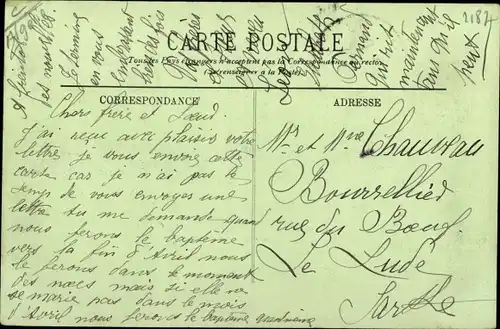 2187
CARTE POSTALE
Tous les Pays étrangers n'acceptent pas la Correspondance au recto
(Se renseigner à la Poste)
CORRESPONDANCE
ADRESSE
Chers frère et Sœur
J'ai reçu avec plaisir votre
lettre je vous envoie cette
carte car je n'ai pas le
temps de vous envoyer une
lettre tu me demande quand
nous ferons le baptême
vers la fin d'Avril nous
le ferons dans le moment
des noces mais si elle ne
se marie pas dans le mois
d'Avril nous ferons le baptême quand même
Mr et Mme Chauveau
Bourrellier
rue du Bœuf
Le Lude
Sarthe
Je termine
en vous
embrassant
bien des fois
maintenant
tant qu'il
peut